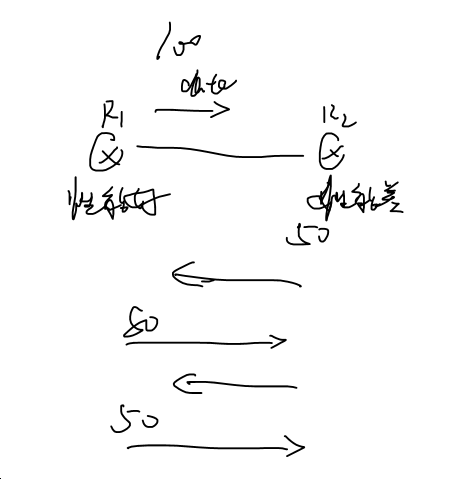 100
date
R1 R2
性能好 性能差
50
80
50